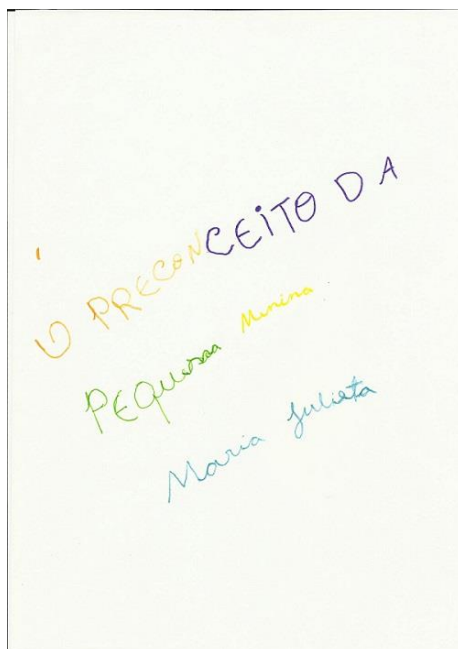 O PRECONCEITO DA
PEQuena Menina
Maria Julieta